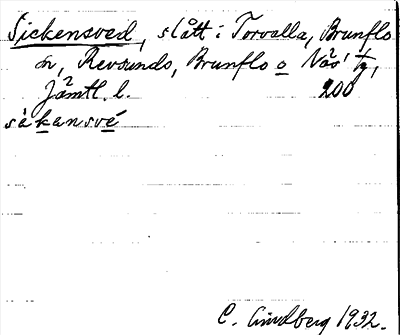 Sickensved, slått i Torvalla, Brunflo
sn, Revsunds, Brunflo o Näs' tg,
Jämtl. l. 200
sàkansvé
C. Lindberg 1932.